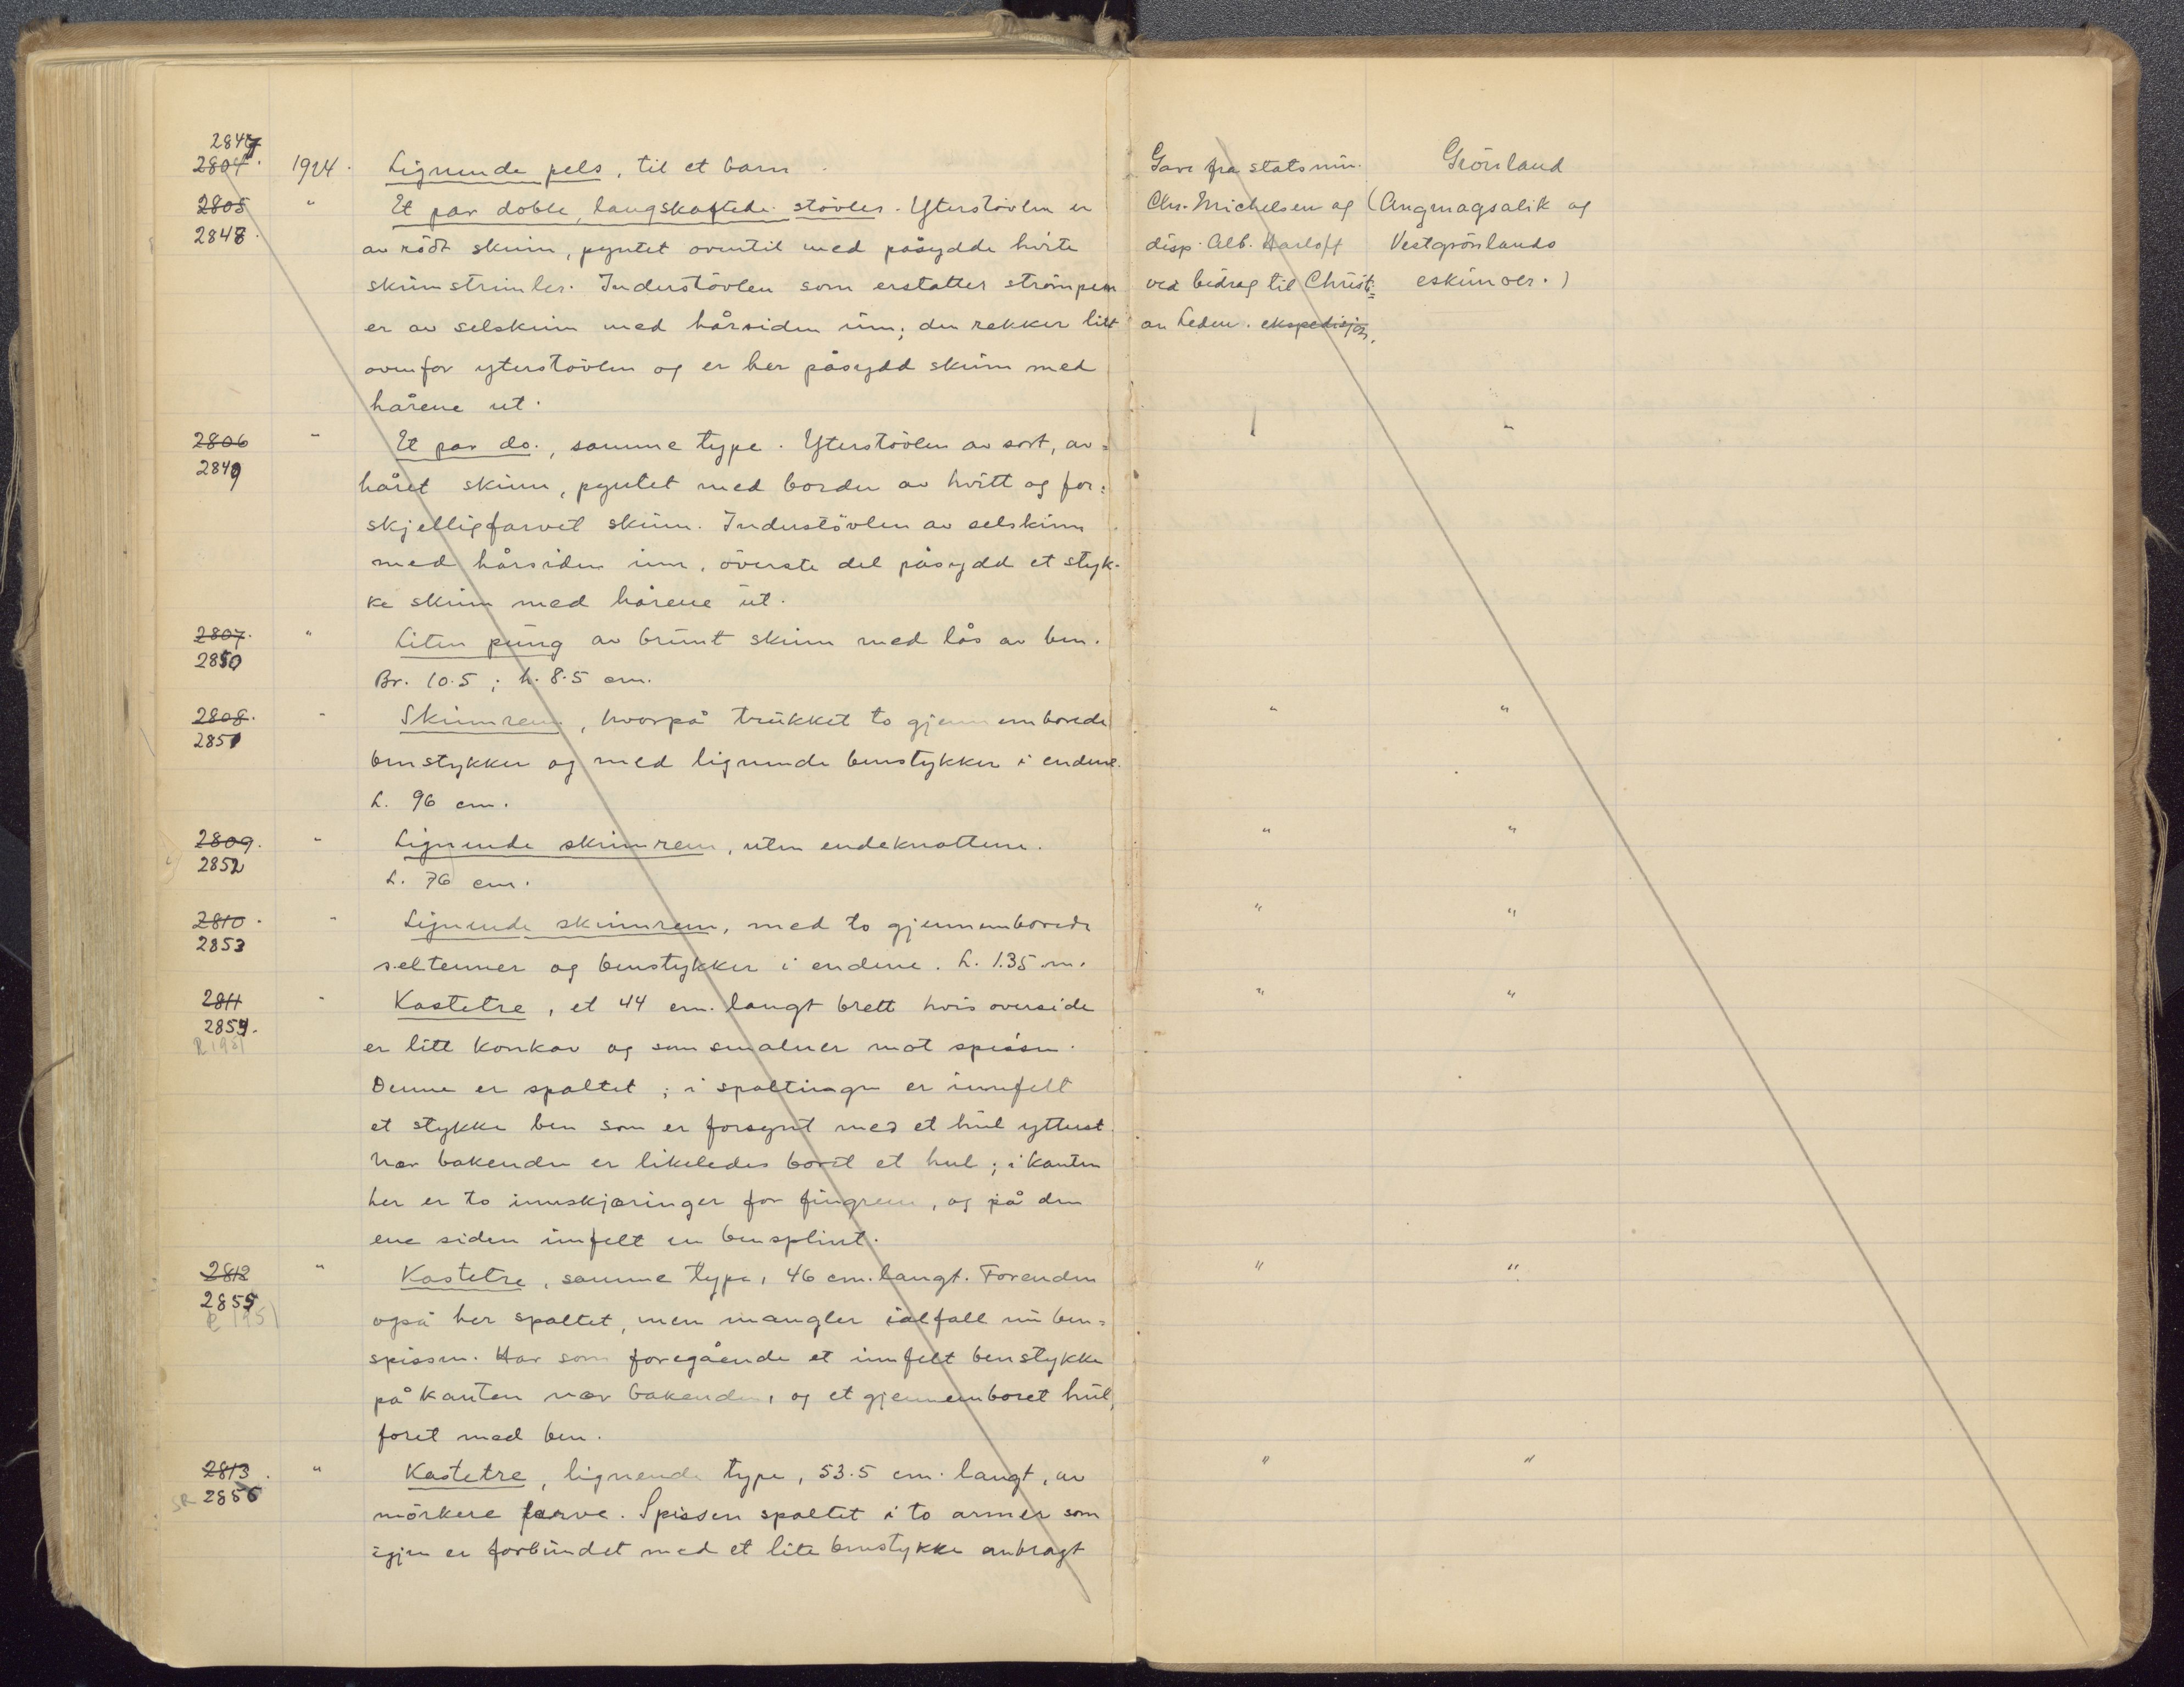 2847
2804. 1924. Lignende pels, til et barn. Gave fra statsmin. Grönland
2805 " Et par doble, langskaftede stövler. Yterstövlen er Chr. Michelsen og (Angmagsalik og
2848. av rödt skinn, pyntet oventil med påsydde hvite disp. Alb. Harloff Vestgrönlands
skinnstrimler. Inderstövlen som erstatter strömpen ved bidrag til Christi= eskimoer.)
er av selskinn med hårsiden inn; den rekker litt an Leden. ekspedisjon.
ovenfor yterstövlen og er her påsydd skinn med
hårene ut.
2806 " Et par do., samme type. Yterstövlen av sort, av= "
2849 håret skinn, pyntet med border av hvitt og for=
skjelligfarvet skinn. Inderstövlen av selskinn
med hårsiden inn, överste del påsydd et styk-
ke skinn med hårene ut.
2807. " Liten pung av brunt skinn med lås av ben.
2850 Br. 10.5; h. 8.5 cm.
2808. " Skinnrem, hvorpå trukket to gjennemborede " "
2851 benstykker og med lignende benstykker i endene.
L. 96 cm.
2809. " Lignende skinnrem, uten endeknottene. " "
2852 L. 76 cm.
2810. " Lignende skinnrem, med to gjennemborede " "
2853 seltenner og benstykker i endene. L. 1.35 m.
2811 " Kastetre, et 44 cm. langt brett hvis overside " "
2854.
R 1951 er litt konkav og som smalner mot spissen.
Denne er spaltet; i spaltingen er innfelt
et stykke ben som er forsynt med et hul ytterst.
Nær bakenden er likeledes boret et hul; i kanten
her er to innskjæringer for fingrene, og på den
ene siden innfelt en bensplint.
2812 " Kastetre, samme type, 46 cm. langt. Forenden " "
2855
R 1951 også her spaltet, men mangler ialfall nu ben=
spissen. Har som foregående et innfelt benstykke
på kanten nær bakenden, og et gjennemboret hul,
foret med ben.
2813. " Kastetre, lignende type, 53.5 cm. langt, av " "
SR 2856 mörkere farve. Spissen spaltet i to armer som
igjen er forbundet med et lite benstykke anbragt